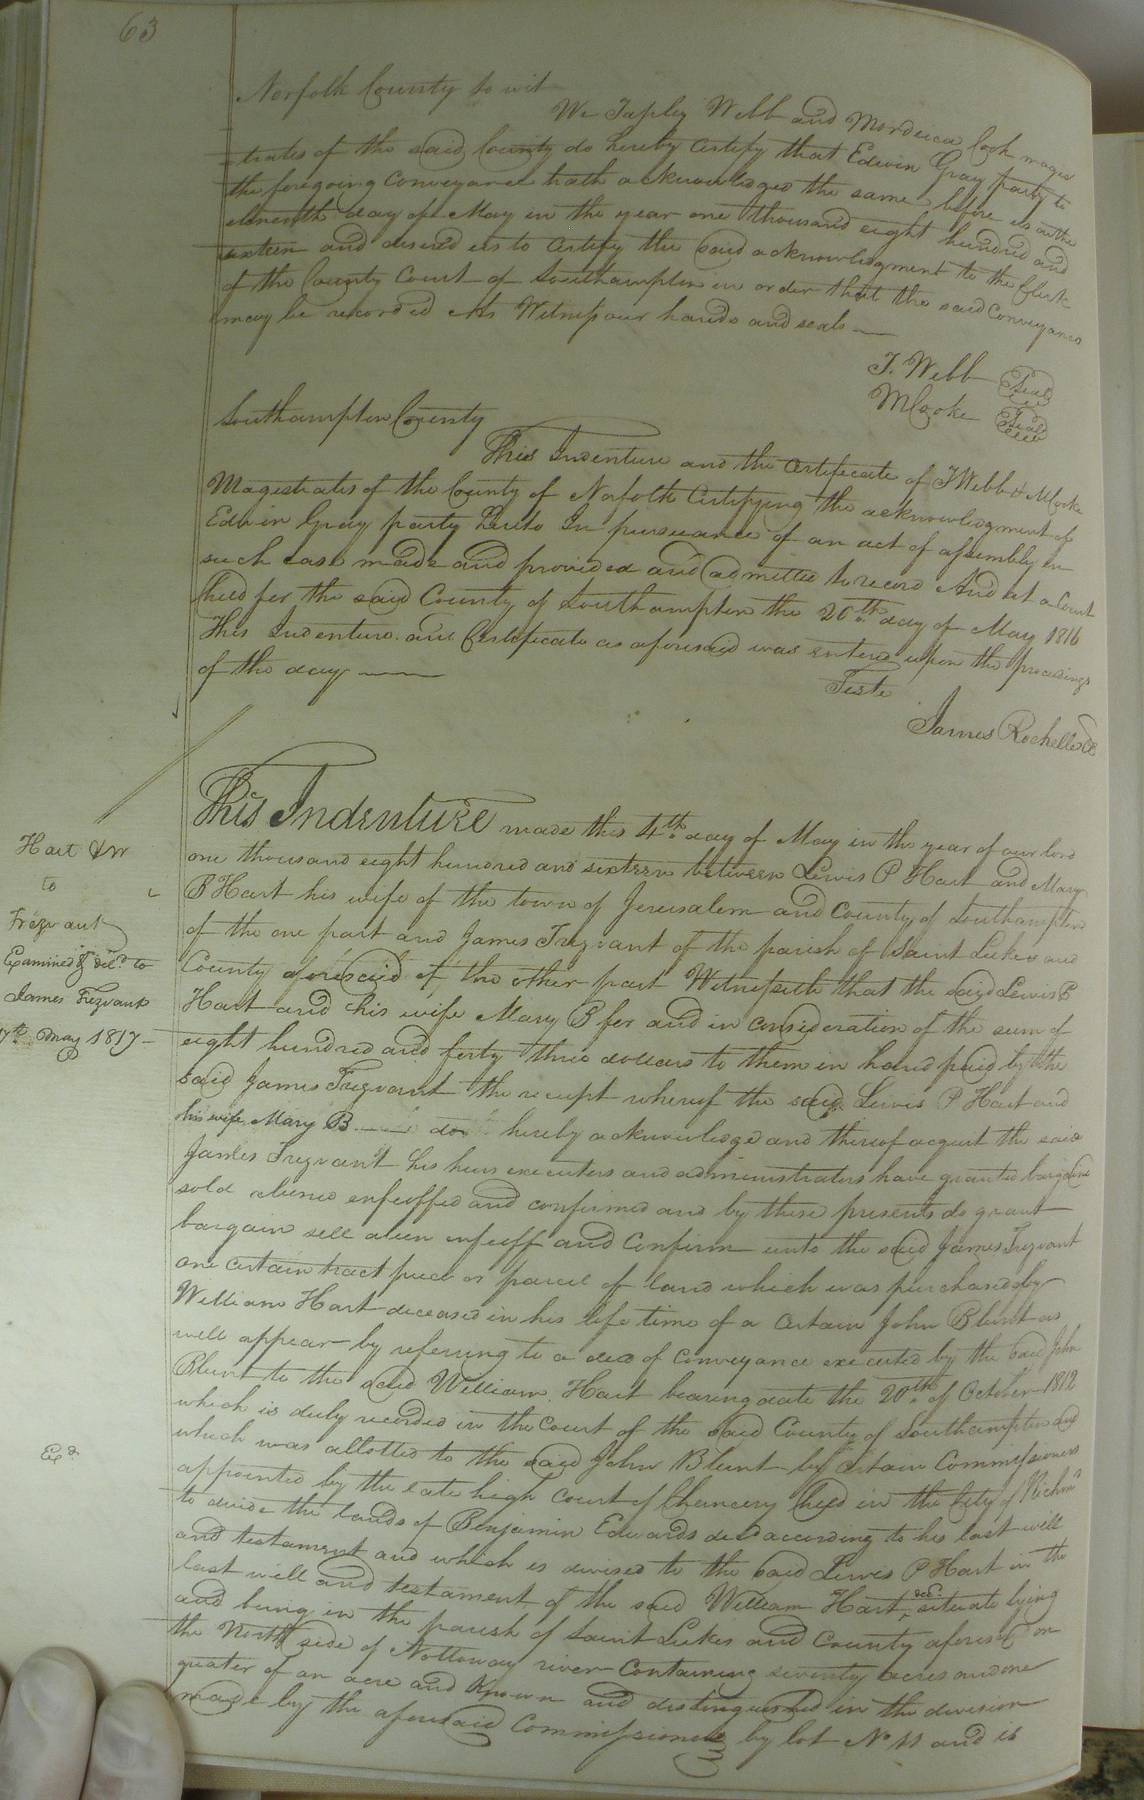 63
Norfolk County to wit
We Tapley Webb and Mordecai Cook magis
trates of the said County do hereby certify that Edwin Gray party to
the foregoing Conveyance hath acknowledged the same before us on the
eleventh day of May in the year one thousand eight hundred and
sixteen and desired us to certify the said acknowledgment to the Clerk
of the County Court of Southampton in order that the said Conveyance
may be recorded As Witness our hands and seals
T. Webb Seal
M Cooke Seal
Southampton County
This Indenture and the certificate of T Webb & M Cooke
Magistrates of the County of Norfolk Certifying the acknowledgment of
Edwin Gray party hereto In pursuance of an act of assembly in
such case made and provided and admitted to record And at a Court
held for the said County of Southampton the 20th day of May 1816
This Indenture and Certificate as aforesaid was entered upon the proceedings
of the day
Teste
James Rochelle
Hart & W
to
Trezvant
Examined & del.d to
James Trezvant
17th May 1817
This Indenture made this 4th day of May in the year of our lord
one thousand eight hundred and sixteen between Lewis P Hart and Mary
B Hart his wife of the town of Jerusalem and County of Southampton
of the one part and James Trezvant of the parish of Saint Lukes and
County aforesaid of the other part Witnesseth that the said Lewis P
Hart and his wife Mary B for and in consideration of the sum of
eight hundred and forty three dollars to them in hand paid by the
said James Trezvant the receipt whereof the said Lewis P Hart and
his wife Mary B do hereby acknowledge and thereof acquit the said
James Trezvant his heirs executors and administrators have granted bargained
sold aliened enfeoffed and confirmed and by these presents do grant
bargain sell alien enfeoff and Confirm unto the said James Trezvant
one certain tract piece or parcel of land which was purchased by
William Hart deceased in his life time of a certain John Blunt as
will appear by referring to a deed of conveyance executed by the said John
Blunt to the said William Hart bearing date the 20th of October 1812
which is duly recorded in the Court of the said County of Southampton and
which was allotted to the said John Blunt by certain Commissioners
appointed by the late high Court of Chancery held in the City of Richmd
to divide the lands of Benjamin Edwards decd according to his last will
and testament and which is devised to the said Lewis P Hart in the
last will and testament of the said William Hart decd. situate lying
and being in the parish of Saint Lukes and County aforesaid on
the North side of Nottoway river Containing seventy acres and one
quater of an acre and Known and distinguished in the division
made by the aforesaid Commissioners by lot No 11 and is
Exd